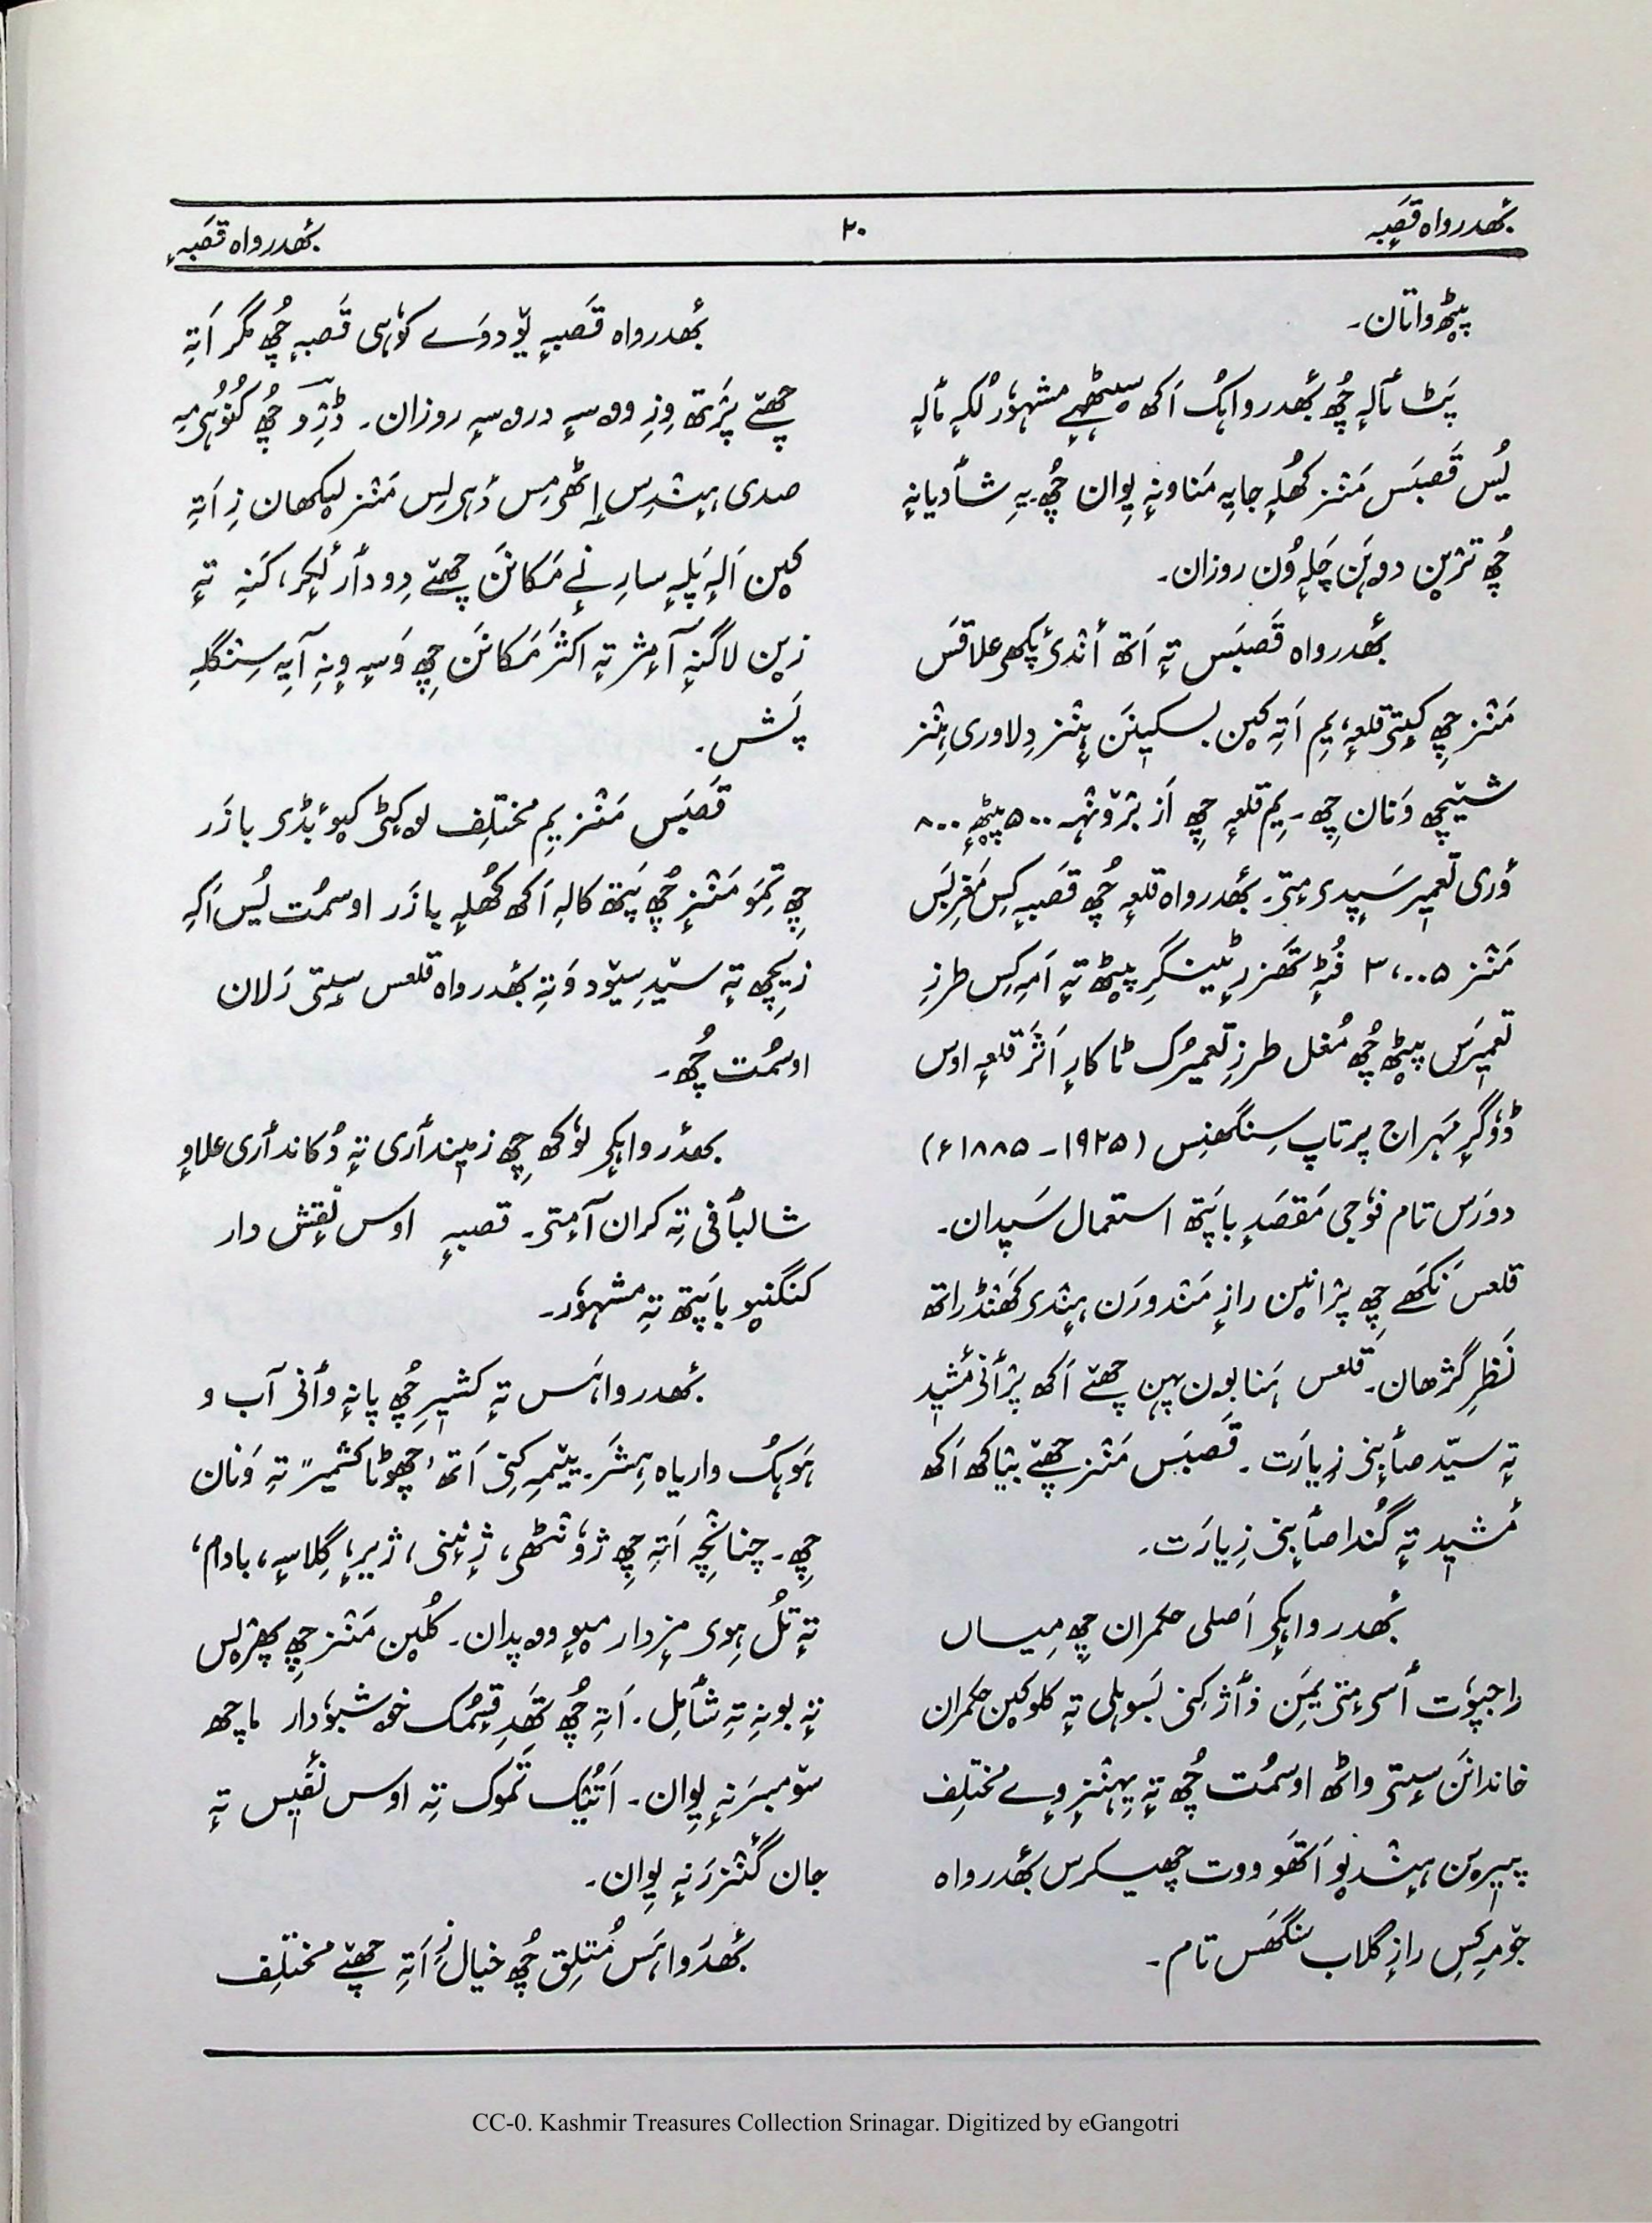 بٔھدرواہ قصَبہٕ
۲۰
بٔھدرواہ قصَبہٕ
پیٚٹھ واتان۔
پَٹ مٲلہٕ چُھ بٔھدرواہُک اَکھ سیٹھہے مشہوٗر لُکہٕ مٲلہٕ
یُس قَصبَس مَنٛز کُھلہٕ جایہِ مَناونہٕ یِوان چُھ۔ یہِ شأدیانہٕ
چُھ ترٛین دۄہَن چَلہٕ وُن روزان۔
بٔھدرواہ قَصبَس تہٕ اَتھ أندۍ پٔکھۍ علاقَس
مَنٛز چِھ کیٖتۍ قلعہٕ، یِم اَتہِ کین بسکیٖنَن ہٕنٛز دِلاوری ہٕنٛز
شیٚچھ وَنان چِھ۔ یِم قلعہٕ چِھ اَز برٛونٛہہ ۵۰۰ پیٚٹھہٕ ۸۰۰
وُری تعمیٖر سَپدیمٕتۍ۔ بٔھدرواہ قلعہٕ چُھ قَصبہٕ کِس مَغرِبَس
مَنٛز ۳،۰۰۵ فُٹہٕ تَھزرٕ ٹینگرِ پیٚٹھ تہٕ اَمہِ کِس طرزِ
تعمیٖرَس پیٚٹھ چُھ مُغل طرزِ تعمیٖرُک ٹاکارٕ اَثَر قلعہٕ اوس
ڈوٗگرٕ مَہراج پرتاپ سِنگھنِس (۱۹۲۵ - ۱۸۸۵ء)
دورَس تام فوٗجی مَقصَدٕ باپَتھ استعمال سَپدان۔
قلعس نَکھے چِھ پرٛانین رازٕ مَندورَن ہِنٛدۍ کَھنڈراتھ
نَظرِ گژھان۔ قلعس ہَنا بۄن پہن چَھےٚ اَکھ پرٛأنۍ مٔشیٖد
تہٕ سیّد صأبنۍ زِیارَت۔ قَصبَس مَنٛز چَھےٚ بیٛاکھ اَکھ
مٔشیٖد تہٕ گُنڈا صأبنۍ زِیارَت۔
بٔھدرواہکۍ اَصلی حکمران چِھ مِیاں
راجپوٗت أسۍمٕتۍ یَمن ذأژ کنۍ بَسوہلی تہٕ کلوکین حکمران
خاندانَن سٕتۍ واٹھ اوسمُت چُھ تہٕ یِہنٛزٕ وٕے مختلِف
پیٖرِین ہِنٛدیو اَتھَو ووت چھیکرس بٔھدرواہ
جۄمِہ کِس رازٕ گلاب سَنگھس تام۔
بٔھدرواہ قَصبہٕ یۆدوَے کوٗہی قَصبہٕ چُھ مگر اَتہِ
چَھےٚ پرٛتھ وِزِ وۄسہٕ دروسہٕ روزان۔ ڈریو چُھ کُنوُہمہِ
صدی ہِنٛدِس إٹھمِس دٔہلِس مَنٛز لیٚکھان زِ اَتہِ
کین اَلہٕ پَلہٕ سارِنٕے مَکانَن چَھےٚ دِودأر لٔکر، کَنہِ تہٕ
زین لاگنہٕ آمٕژ تہٕ اکثر مَکانَن چِھ وَسہٕ وِنہِ آیہِ سِنگلہٕ
پَش۔
قَصبَس مَنٛز یِم مختلِف لۄکٹۍ کیو بٔڈۍ بازَر
چِھ تِمَو مَنٛزٕ چُھ پَتھ کالہٕ اَکھ کُھلہٕ بازَر اوسمُت یُس اَکہِ
زٕیچھ تہٕ سیٚدِ سیٚود وَتہِ بٔھدرواہ قلعس سٕتۍ رَلان
اوسمُت چُھ۔
بٔھدرواہکۍ لوٗکھ چِھ زمیندأری تہٕ دُکاندأری علاوٕ
شالبأفی تہِ کران آمٕتۍ۔ قصبہٕ اوس نٔقش دار
کنگنیو باپَتھ تہِ مشہوٗر۔
بٔھدرواہَس تہٕ کشیٖرِ چُھ پانہٕ وأنۍ آب و
ہَوہُک واریاہ ہِشَر۔ ییٚمہِ کِنۍ اَتھ "چھوٹا کشمیر" تہِ وَنان
چِھ۔ چنانچہِ اَتہِ چِھ ژوٗنٹھۍ، ژٕنِنۍ، ژیرٕ، گِلاسہٕ، بادام،
تہٕ تُل ہِوۍ مزٕدار میوٕ وۄپدان۔ کُلین مَنٛز چِھ پھرٛلس
تہٕ بونہِ تہِ شأمِل۔ اَتہِ چُھ تَھدِ قیمُک خۄشبوٗدار ماچھ
سۄمبرَنہٕ یِوان۔ اَتُیُک تَموک تہِ اوس نٔفیٖس تہٕ
جان گنٛزرَنہٕ یِوان۔
بٔھدرواہَس مُتلِق چُھ خیال زِ اَتہِ چَھےٚ مختلِف
CC-0. Kashmir Treasures Collection Srinagar. Digitized by eGangotri